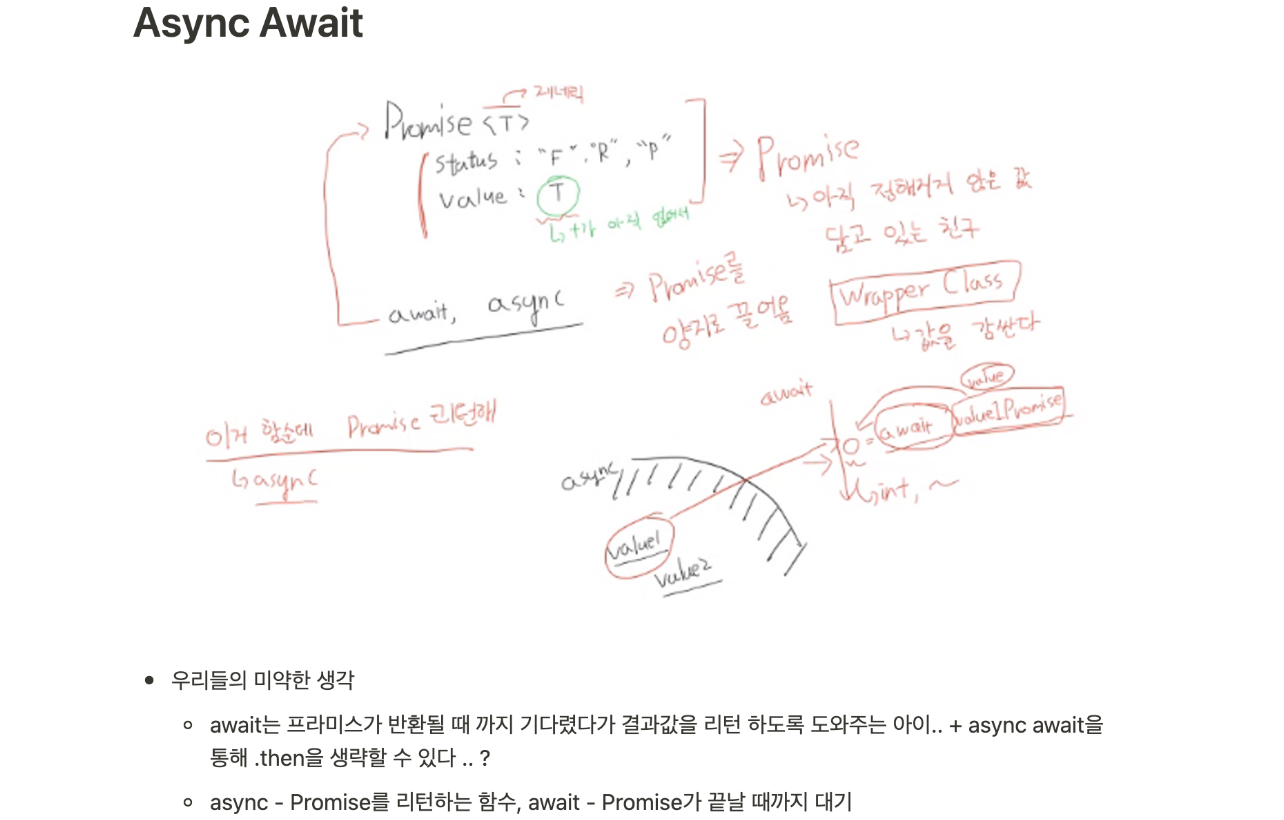 Async Await
제네릭
Promise <T>
status : "F", "R", "P"
value : T
↳ T가 아직 없어서
⇒ Promise
↳ 아직 정해지지 않은 값
담고 있는 친구
Wrapper Class
↳ 값을 감싼다
await, async
⇒ Promise를
양지로 끌어옴
이거 함순데 Promise 리턴해
↳ async
async
value1
value2
await
value
= await value1Promise
↳ int, ~
• 우리들의 미약한 생각
◦ await는 프라미스가 반환될 때 까지 기다렸다가 결과값을 리턴 하도록 도와주는 아이.. + async await을
통해 .then을 생략할 수 있다 .. ?
◦ async - Promise를 리턴하는 함수, await - Promise가 끝날 때까지 대기